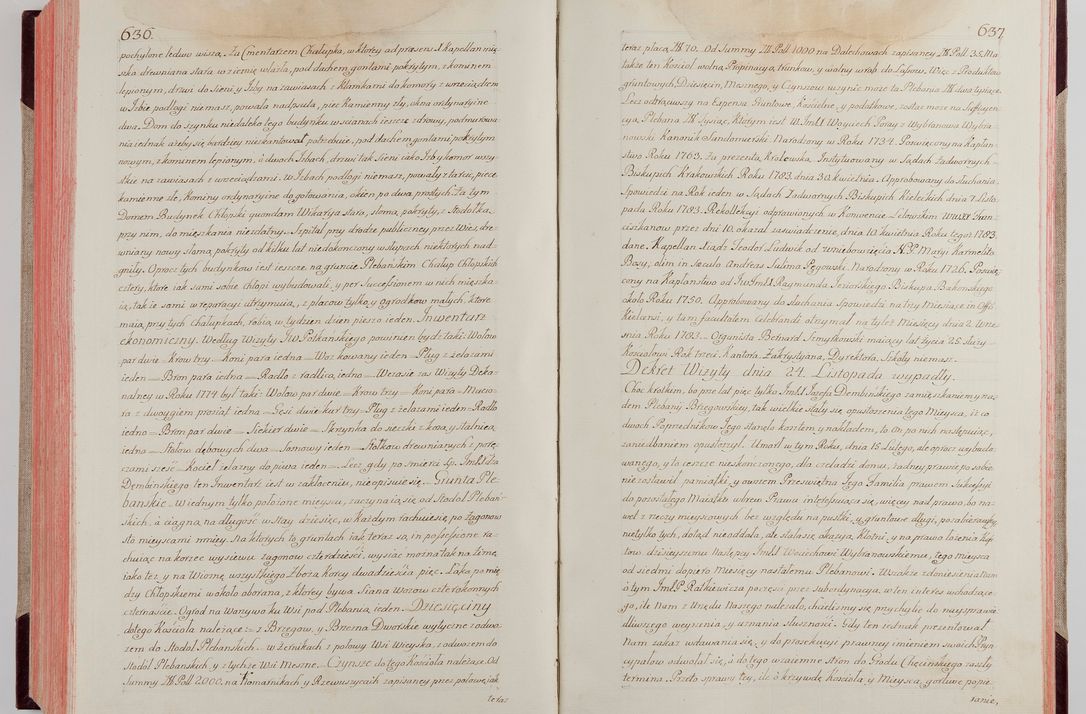 636.
pochylone ledwo wiszą. Za Cmentarzem Chałupka, w ktorey ad præsens J. Kapellan mie-
szka drewniana stara w ziemię wlazła, pod dachem gontami pokrytym, z kominem
lepionym, drzwi do Sieni y Izby na zawiasach z klamkami do komory z wrzeciądzem
w Izbie podłogi niemasz, powała nadpsuta, piec kamienny zły, okna ordynaryine
dwa. Dom do szynku niedaleko tego budynku w scianach ieszcze zdrowy, podmurowa-
nia iednak ażeby się bardziey nieskantował potrzebuie, pod dachem gontami pokrytym
nowym, z kominem lepionym, o dwoch Izbach, drzwi tak Sieni iako Izby komor wszy-
stkie na zawiasach z wrzeciądzami. w Izbach podłogi niemasz, powały z tarcic, piece
kamienne złe, Kominy ordynaryine do gotowania, okien po dwa prostych. Za tym
Domem Budynek Chłopski quondam Wikarya stara, słomą pokryty, z Stodołką
przy nim, do mieszkania niezdatny. Szpital przy drodze publiczney przez Wieś dre-
wniany nowy słomą pokryty od kilku lat niedokończony w słupach niektorych nad-
gniły. Oprocz tych budynkow iest ieszcze na gruncie Plebańskim Chałup Chłopskich
cztery, ktore iak sami sobie chłopi wybudowali, y per Successionem w nich mieszka-
ią, tak ie sami w reparacyi utrzymuią, z placow tylko, y ogrodkow małych, ktore
maią przy tych Chałupkach, robią w tydzien dzien pieszo ieden. Inwentarz
ekonomiczny. Według Wizyty Jw Potkańskiego powinien bydź taki: Wołow
par dwie Krow trzy Koni para iedna Woz kowany ieden Pług z żelazami
ieden Bron para iedna Radło z radlicą iedno. Wczasie zaś Wizyty Deka-
nalney w Roku 1774 był taki: Wołow par dwie Krow trzy Koni para Macio-
ra z dwoygiem prosiąt iedna Gęsi dwie kur trzy Pług z żelazami ieden Radło
iedno Bron par dwie Siekier dwie Skrzynka do sieczki z kosą y stalnicą
iedna Stołow dębowych dwa Sosnowy ieden Stołkow drewnianych z porę-
czami sześć Kocieł żelazny do piwa ieden. Lecz gdy po śmierci śp. Jmć Xdza
Dembinskiego ten Inwentarz iest w zakłoceniu, nieopisuie się. Grunta Ple-
bańskie W iednym tylko położone mieyscu, zaczynaią się od Stodoł Plebań-
skich, a ciągną na długość w Stay dziesięć, w każdym rachuiesię po Zagonow
sto mieyscami mniey. Na ktorych to gruntach iak teraz są, in possessione ra-
chuiąc na korzec wysiewu zagonow czterdzieści, wysiac można tak na Zimę,
iako też y na Wiosnę, wszystkiego Zboża Korcy dwadzieścia pięć. Łąka, po mię-
dzy Chłopskiemi wokoło oborana, z ktorey bywa Siana Wozow czterokonnych
czternaście. Ogrod na Warzywo ku Wsi pod Plebanią ieden. Dziesięciny
do tego Kościoła należące: z Brzegow, y Brzezna Dworskie wytyczne z odwo-
zem do Stodoł Plebańskich. w Żernikach z połowy Wsi Wieyska, z odwozem do
Stodoł Plebańskich, y z tychże Wsi Meszne. Czynsze do tego Kościoła należące. Od
Summy Zł Pol. 2000. na Komarnikach y Rzewuszycach zapisaney przez połowę, iak
teraz

637.
teraz płacą Zł 70. Od Summy Zł Poll. 1000. na Dalechowach zapisaney Zł Poll. 35. Ma
także ten Kościoł wolną Propinacyą, trunkow, y wolny wrąb do Lasow. Więc z Produktow
gruntowych, Dziesięcin, Mesznego, y Czynszow uczynic może ta Plebania Zł dwa tysiące.
Lecz odtrąciwszy na Expensa Gruntowe, Kościelne, y podatkowe, zostac może na Suffycen-
cyą Plebana Zł Tysiąc, Ktorym iest W. Jmć X Woyciech Poray z Wybranowa Wybra-
nowski Kanonik Sandomierski. Narodzony w Roku 1734. Poswięcony na Kapłan-
stwo Roku 1763. Za prezentą Krolewską Instytuowany w Sądach Zadwornych
Biskupich Krakowskich Roku 1783. dnia 30. kwietnia. Approbowany do słuchania
Spowiedzi na Rok ieden w Sądach Zadwornych Biskupich Kieleckich dnia 7. Listo-
pada Roku 1783. Rekollekcye odprawionych w Konwencie Lelowskim WWXX Fran-
ciszkanow przez dni 10. okazał zaswiadczenie, dnia 10. kwietnia Roku tegoż 1783.
dane. Kapellan Xiądz Teodor Ludwik od Wniebowzięcia N.P. Maryi Karmelita
Bosy, olim in Sæculo Andreas Sulima Pęgowski. Narodzony w Roku 1726. Poswię-
cony na Kapłanstwo od JwJmć X Raymunda Jezierskiego Biskupa Bakowskiego
około Roku 1750. Approbowany do słuchania Spowiedzi na trzy Miesiące in Offo
Kielcensi, y tam facultatem Celebrandi otrzymał na tyleż Miesięcy dnia 2. Wrze-
snia Roku 1783. Organista Bernard Szmytkowski maiący lat życia 25. służy
Kościołowi Rok trzeci. Kantora, Zakrystyana, Dyrektora, Szkoły niemasz.
Dekret Wizyty dnia 24. Listopada wypadły.
Choć krotkim, bo przez lat pięć tylko Jmć X Jozefa Dembinskiego zamięszkaniem y rzą-
dem Plebany Brzegowskiey, tak wielkie stały się opustoszenia tego Mieysca, iż co
dwoch Poprzednikow Jego stanęło kosztem y nakładem, to On po nich następuiąc,
zaniedbaniem opustoszył. Umarł w tym Roku, dnia 15. Lutego, ale oprocz wybudo-
wanego, y to ieszcze nieskończonego, dla czeladzi domu, żadney prawie po sobie
niezostawił pamiątki, y owszem Przeswiętna Jego Familia, prawem Sukcessyi
do pozostałego Maiątku wbrew Prawa interessuiąca się, więcey nad prawo, bo na-
wet z rzeczy mieyscowych bez względu na pustki, y gruntowe długi, pozabieraiąc,
nietylko tych, dotąd nieoddała, ale stała się okazyą Kłotni, y na prawo łożenia Kosz-
tow, dzisieyszemu Następcy Jmć X Woiciechowi Wybranowskiemu, tego mieysca
od siedmi dopiero Miesięcy nastałemu Plebanowi. Wszakże z doniesienia Nam
o tym Jmć P. Ratkiewicza poczęsci przez subordynacyą, w ten interes wchodzące-
go, ile Nam z Urzędu Naszego należało, chcieliśmy się przychylic do nayprawie-
dliwszego weyrzenia, y uznania słuszności. Gdy ten iednak prezentował
Nam zakaz wdawania się, y do prosekucyi prawney imieniem swoich Pryn-
cypałow odwołał się, a do tego wzaiemne stron do Grodu Chęcinskiego zaszły
termina. Przeto sprawę tey, ile o krzywdę Kościoła, y Mieysca, gorliwe popie-
ranie,